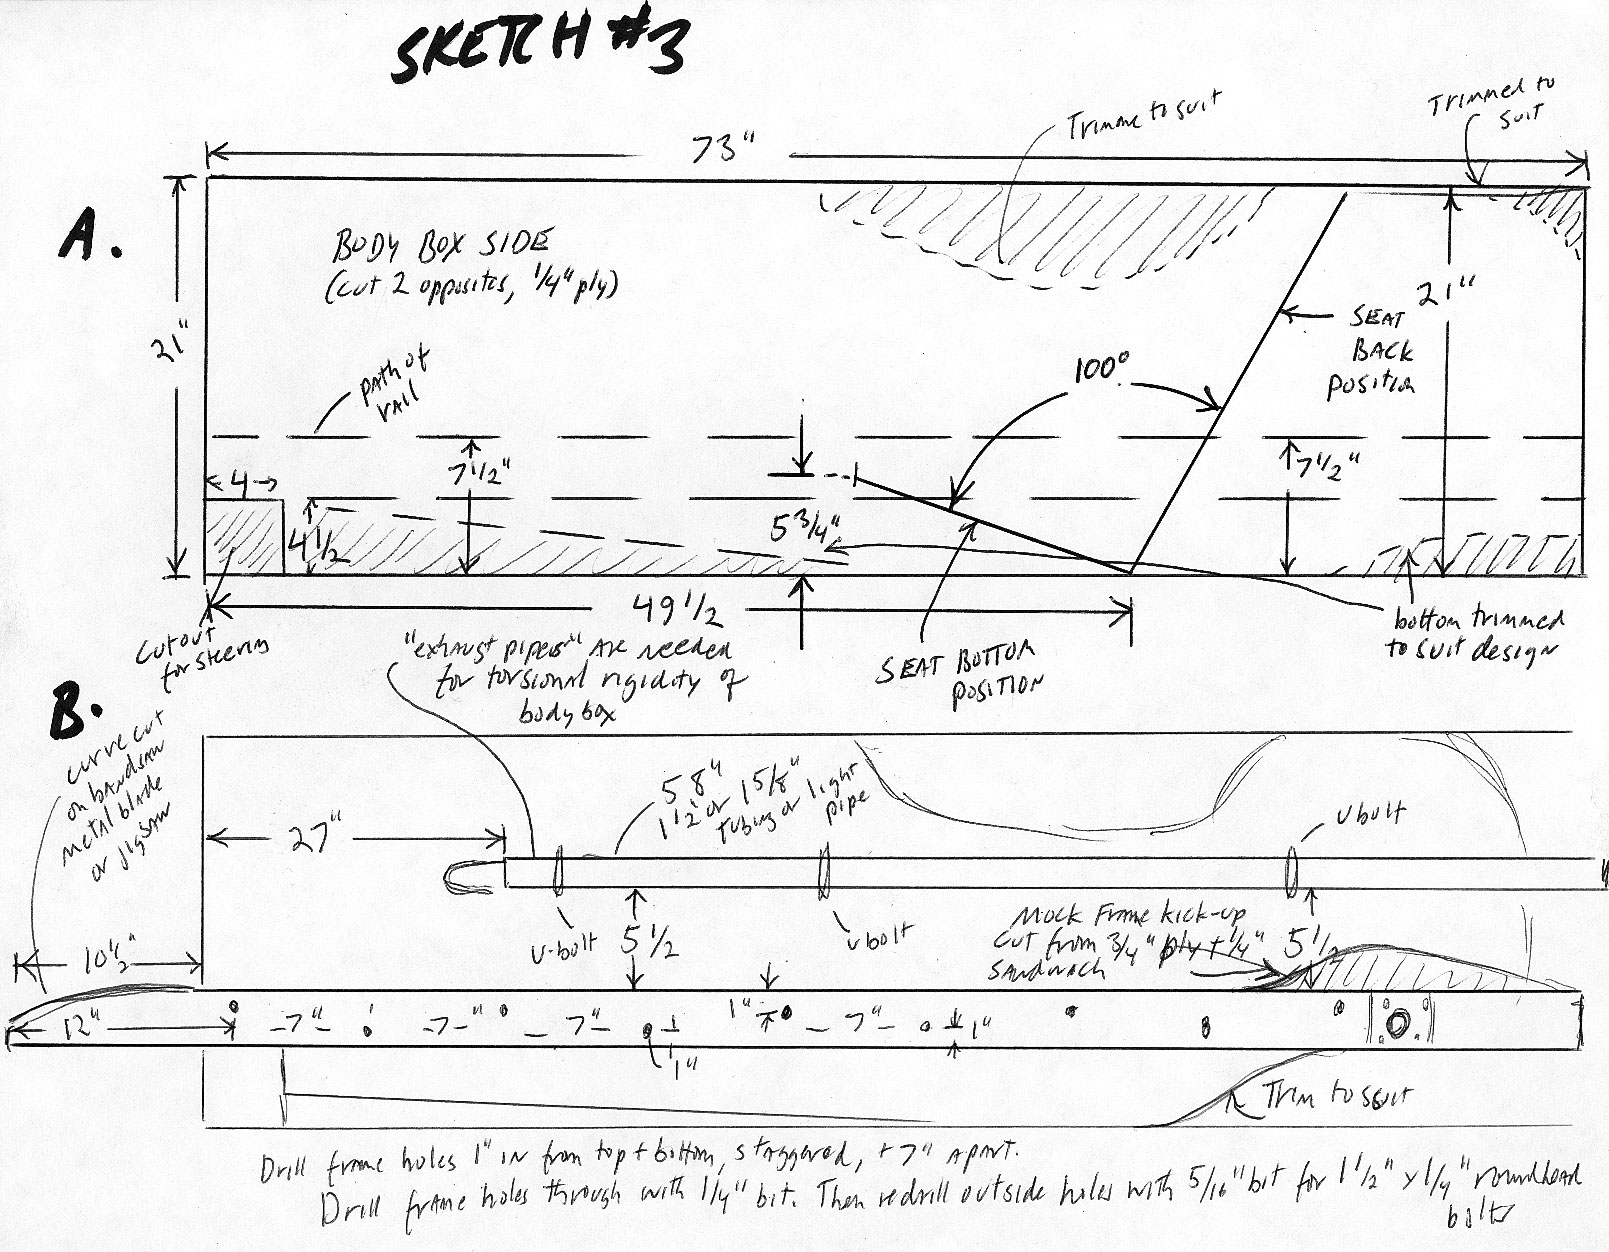 SKETCH #3
73"
Trimme to suit
Trimmed to
suit
A.
BODY BOX SIDE
(cut 2 opposites, 1/4" ply)
21"
path of
rail
100°
SEAT
BACK
position
21"
4
7 1/2"
7 1/2"
4 1/2
5 3/4"
49 1/2
cutout
for steering
"exhaust pipes" are needed
for torsional rigidity of
body box
SEAT BOTTOM
POSITION
bottom trimmed
to suit design
B.
curve cut
on bandsaw
metal blade
or jigsaw
27"
58"
1 1/2 or 1 5/8"
tubing or light
pipe
u bolt
u-bolt
5 1/2
u bolt
Mock Frame kick-up
cut from 3/4" ply + 1/4"
sandwich
5 1/2
10 1/2"
12"
-7"-
-7-"
-7"-
1"
1"
-7"-
1"
Trim to suit
Drill frame holes 1" in from top + bottom, staggered, + 7" apart.
Drill frame holes through with 1/4" bit. Then redrill outside holes with 5/16" bit for 1 1/2" x 1/4" roundhead
bolts